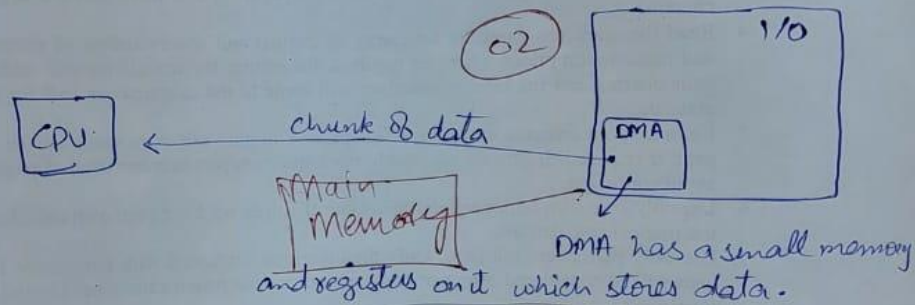 02
I/O
CPU
chunk of data
DMA
Main
Memory
DMA has a small memory
and registers on it which stores data.